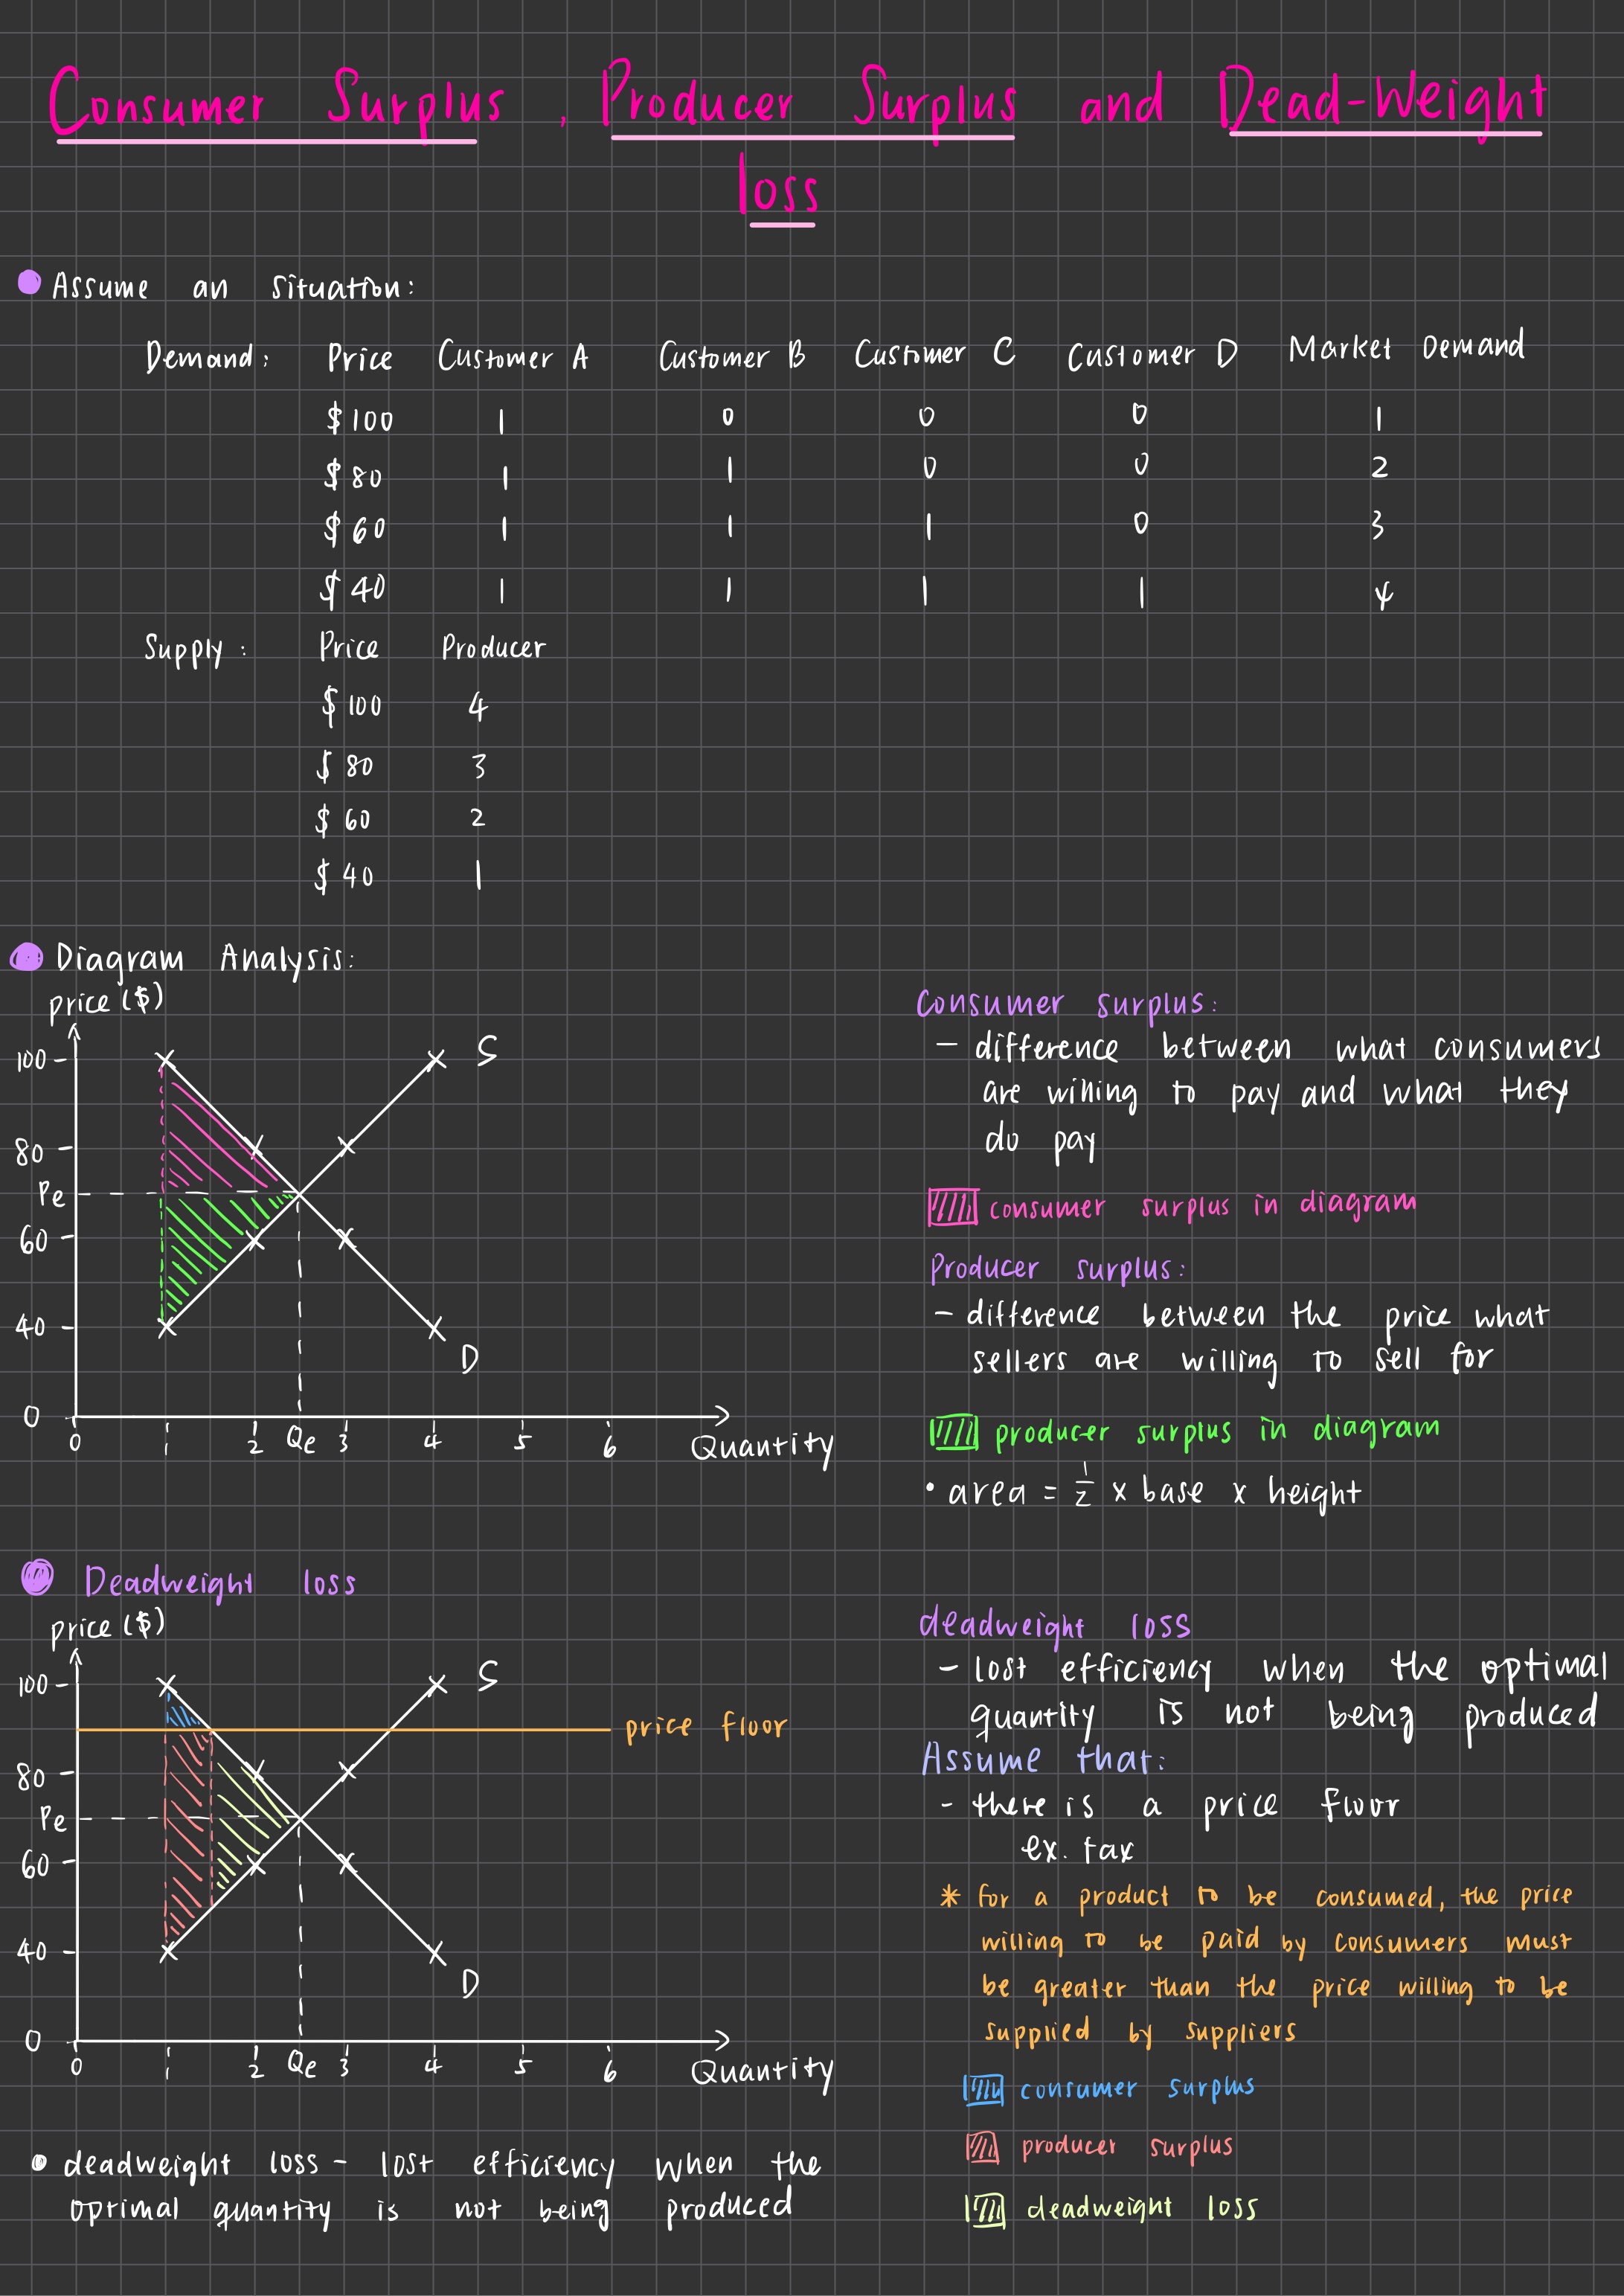 Consumer Surplus, Producer Surplus and Dead-Weight
loss
Assume an situation:
Demand: Price Customer A Customer B Customer C Customer D Market Demand
$100 1 0 0 0 1
$80 1 1 0 0 2
$60 1 1 1 0 3
$40 1 1 1 1 4
Supply: Price Producer
$100 4
$80 3
$60 2
$40 1
Diagram Analysis:
price ($)
100
80
Pe
60
40
0
S
D
0 1 2 Qe 3 4 5 6 Quantity
Consumer surplus:
- difference between what consumers
are willing to pay and what they
do pay
consumer surplus in diagram
Producer surplus:
- difference between the price what
sellers are willing to sell for
producer surplus in diagram
• area = 1/2 x base x height
Deadweight loss
price ($)
100
80
Pe
60
40
0
S
price floor
D
0 1 2 Qe 3 4 5 6 Quantity
• deadweight loss - lost efficiency when the
optimal quantity is not being produced
deadweight loss
- lost efficiency when the optimal
quantity is not being produced
Assume that:
- there is a price floor
ex. tax
* for a product to be consumed, the price
willing to be paid by consumers must
be greater than the price willing to be
supplied by suppliers
consumer surplus
producer surplus
deadweight loss